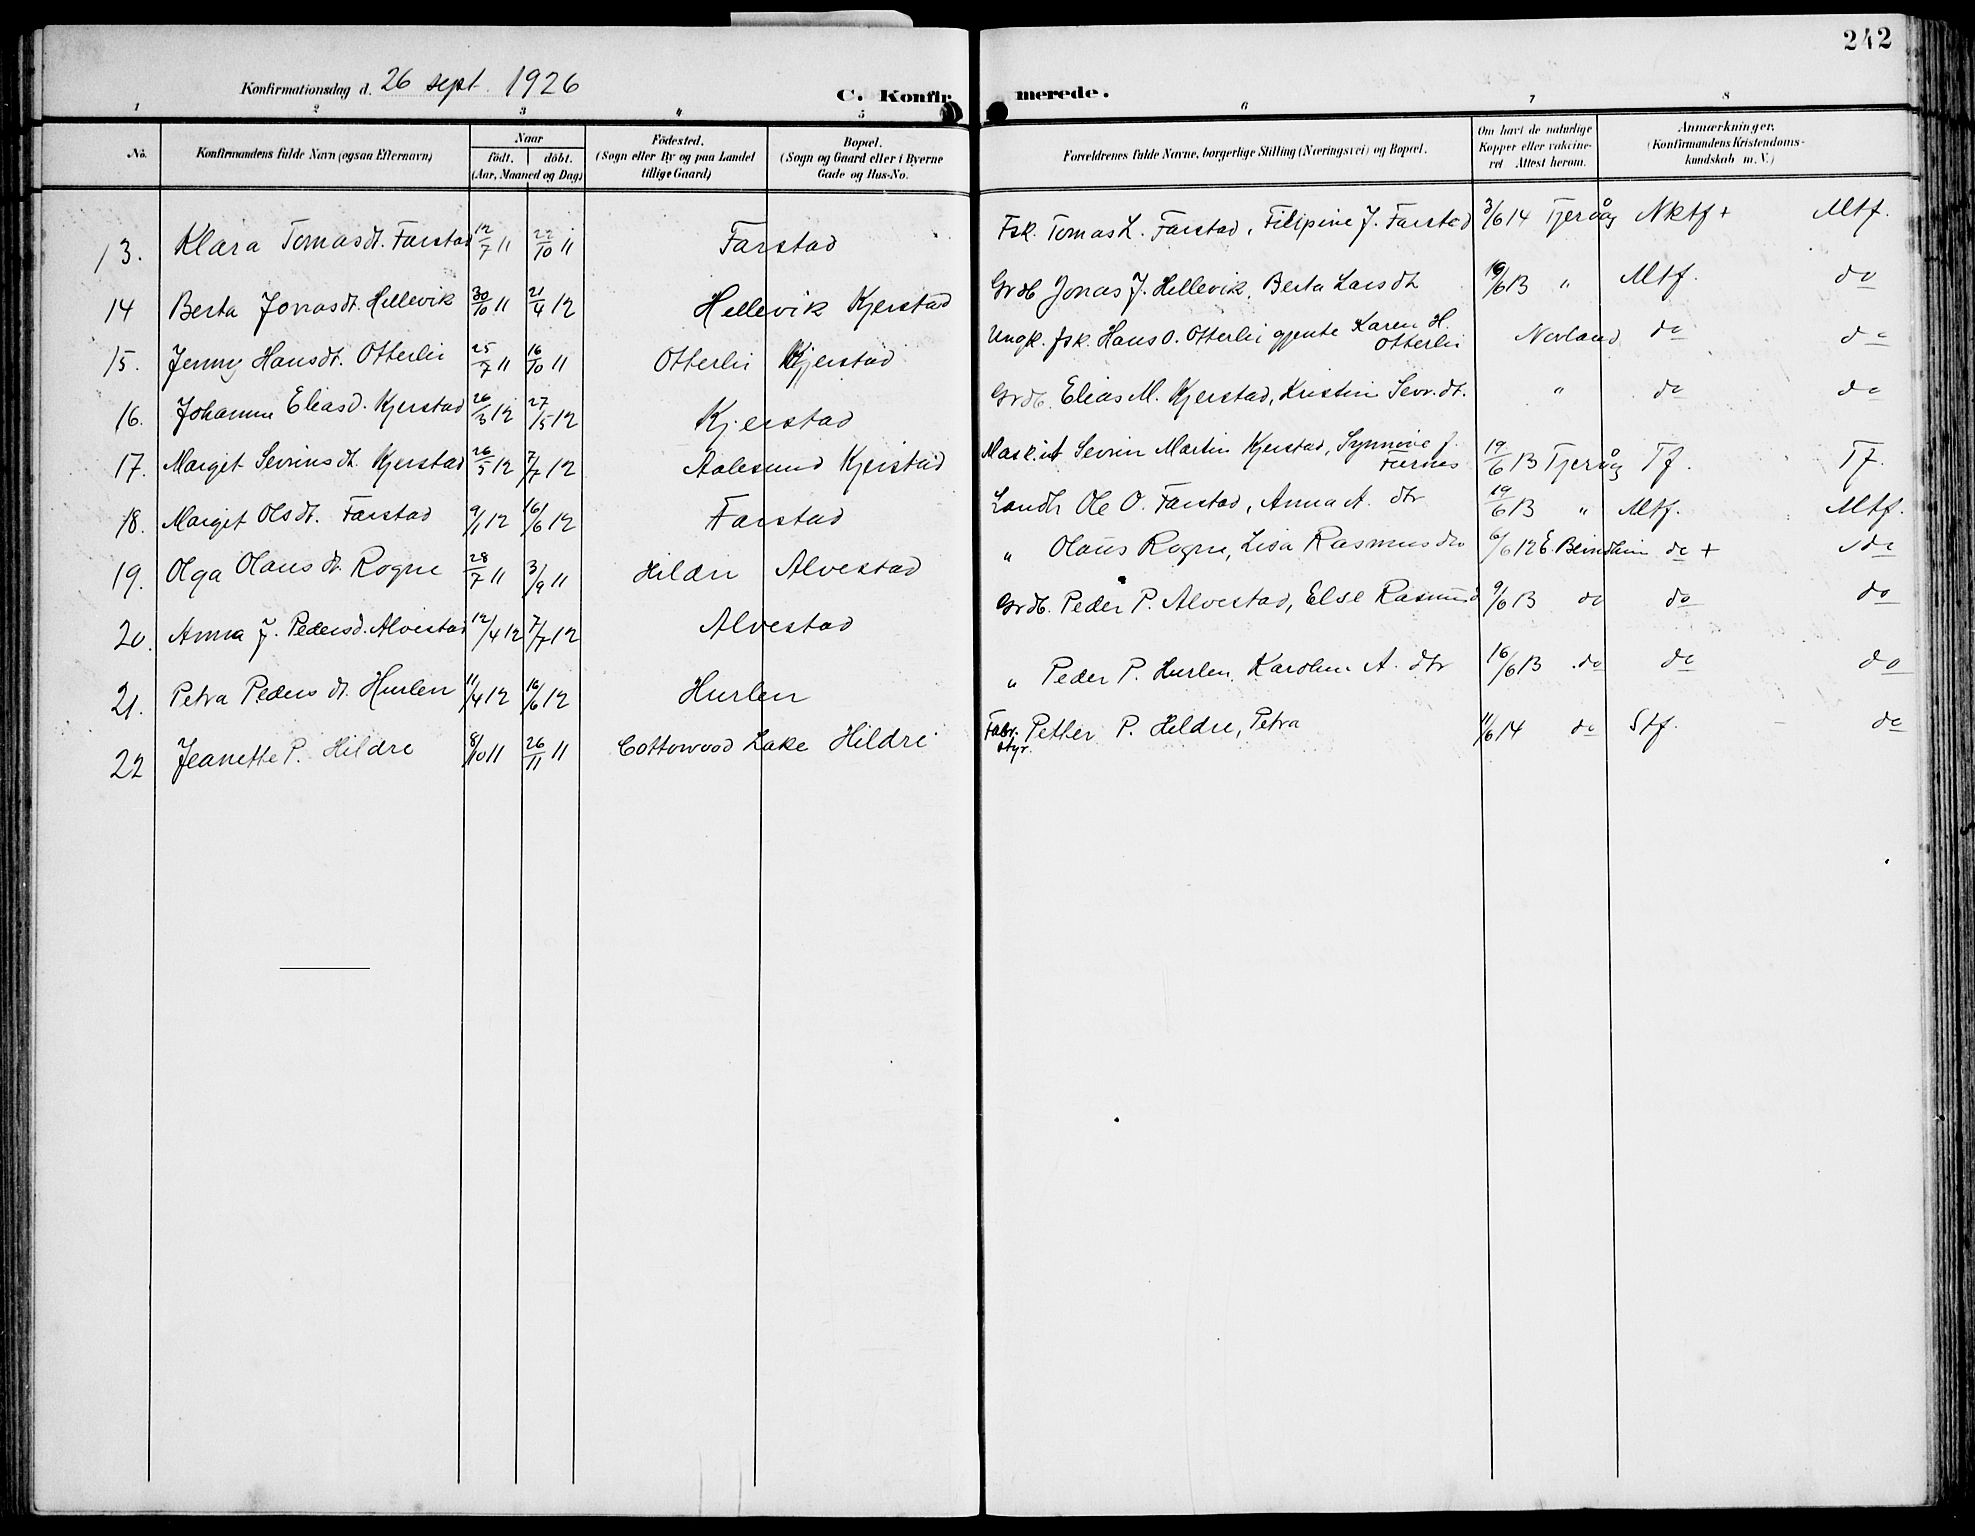 242
Konfirmationsdag d. 26 sept. 1926
C. Konfirmerede.
1 2 3 4 5 6 7 8
No.
Konfirmandens fulde Navn (ogsaa Efternavn)
Naar
födt. döbt.
(Aar, Maaned og Dag)
Födested.
(Sogn eller By og paa Landet
tillige Gaard)
Bopæl.
(Sogn og Gaard eller i Byerne
Gade og Hus-No.
Forældrenes fulde Navne, borgerlige Stilling (Næringsvei) og Bopæl.
Om havt de naturlige
Kopper eller vakcine-
ret Attest herom.
Anmærkninger.
(Konfirmandens Kristendoms-
kundskab m. V.)
13. Klara Tomasdt. Farstad 12/7 11 22/10 11 Farstad Fsk. Tomas L. Farstad, Filipine J. Farstad 3/6 14 Tjeråg Nktf + Mtf.
14 Berta Jonasdt. Hellevik 30/10 11 21/4 12 Hellevik Kjerstad Grdb Jonas J. Hellevik, Berta Larsdt 19/6 13 " Mtf. do
15. Jenny Hansdt. Otterlei 25/7 11 16/10 11 Otterlei Kjerstad Ungk. fsk. Hans O. Otterlei gjente Karen H. Otterlei Norland do do
16. Johanne Eliasd. Kjerstad 26/3 12 27/5 12 Kjerstad Grdb. Elias M. Kjerstad, Kristin Sevr.dt. " do do
17. Marget Sevrinsdt. Kjerstad 26/5 12 7/7 12 Aalesund Kjerstad Mask.ist Sevrin Martin Kjerstad, Synnøve J. Furnes 19/6 13 Tjeråg Tf. Tf.
18. Marget Olsdt. Farstad 9/1 12 16/6 12 Farstad Landh Ole O. Farstad, Anna A. dtr 19/6 13 " Mtf. Mtf.
19. Olga Olausdt. Rogne 28/7 11 3/9 11 Hildri Alvestad " Olaus Rogne, Lisa Rasmusdtr 6/6 12 E. Beindheim do + do
20. Anna J. Pedersd. Alvestad 12/4 12 7/7 12 Alvestad Grdb. Peder P. Alvestad, Else Rasmusd 9/6 13 do do do
21. Petra Pedersdt. Hurlen 11/4 12 16/6 12 Hurlen " Peder P. Hurlen, Karoline A. dtr 16/6 13 do do do
22 Jeanette P. Hildre 8/10 11 26/11 11 Cottowood Lake Hildre Fabr. styr. Petter P. Hildre, Petra 11/6 14 do Stf. do